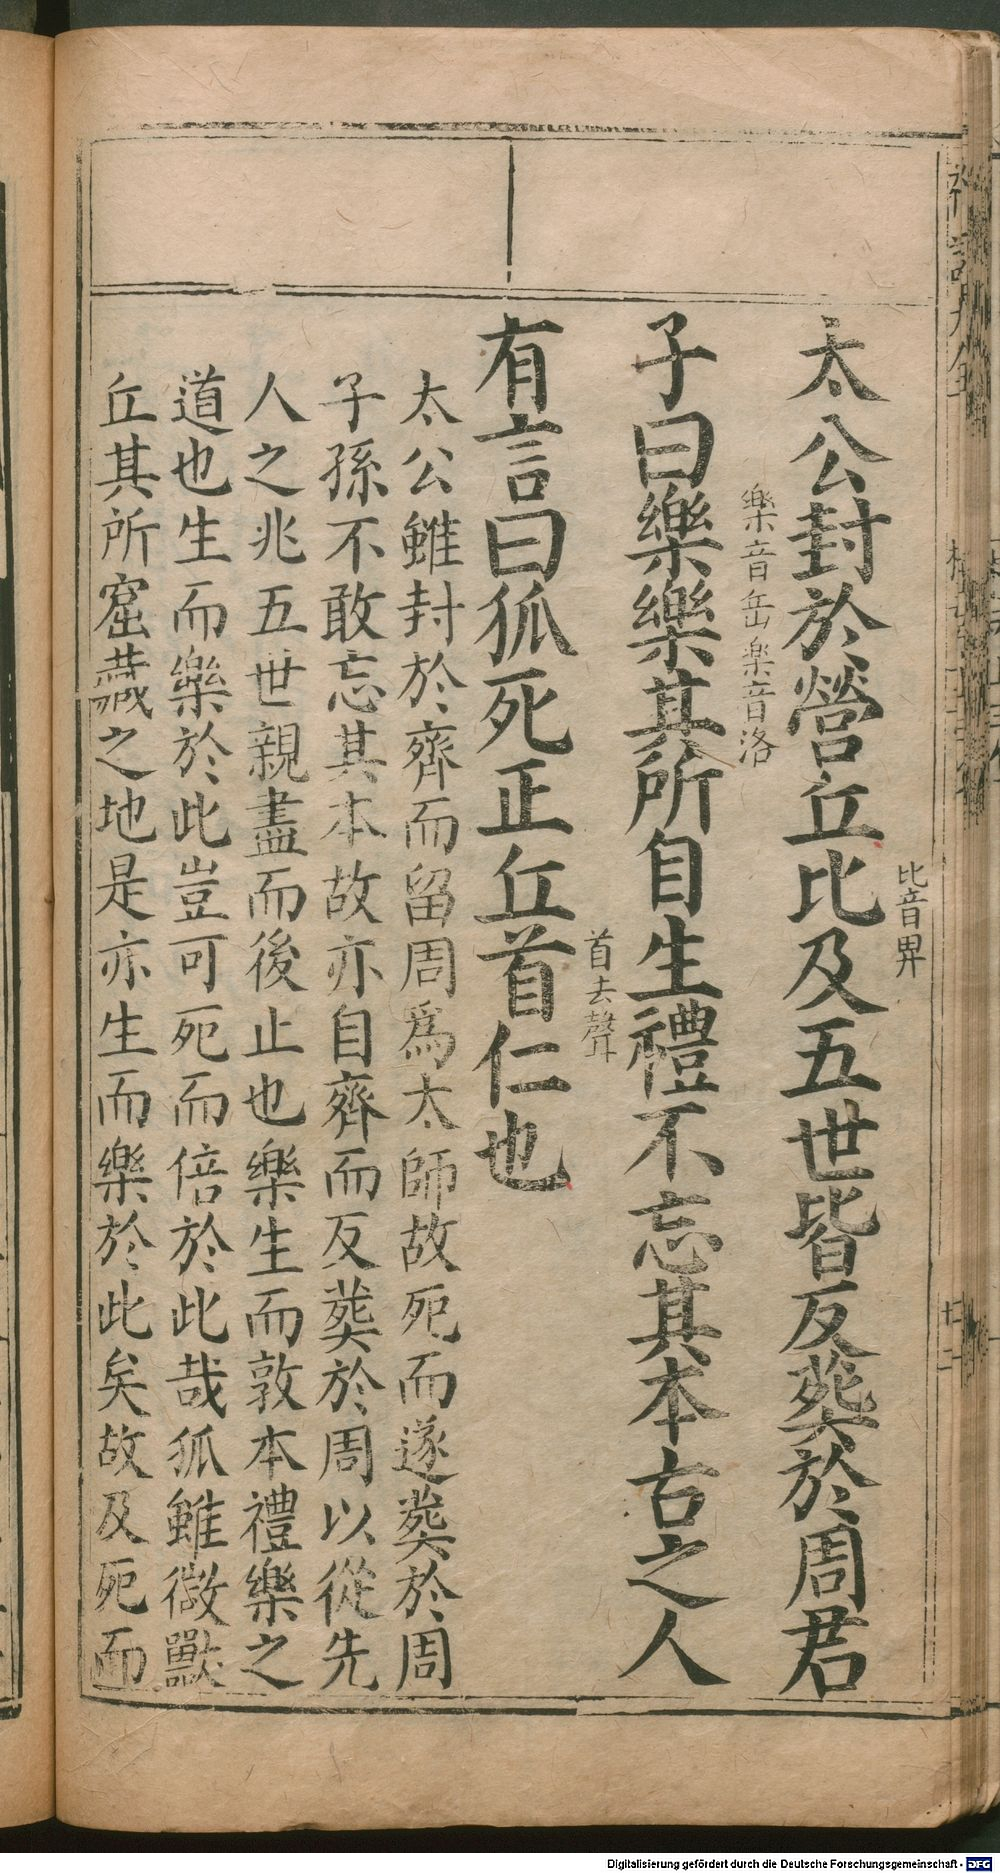 比音畀
太公封於營丘比及五世皆反葬於周君
樂音岳樂音洛
子曰樂樂其所自生禮不忘其本古之人
首去聲
有言曰狐死正丘首仁也
太公雖封於齊而留周爲太師故死而遂葬於周
子孫不敢忘其本故亦自齊而反葬於周以從先
人之兆五世親盡而後止也樂生而敦本禮樂之
道也生而樂於此豈可死而倍於此哉狐雖微獸
丘其所窟藏之地是亦生而樂於此矣故及死而
Digitalisierung gefördert durch die Deutsche Forschungsgemeinschaft - DFG